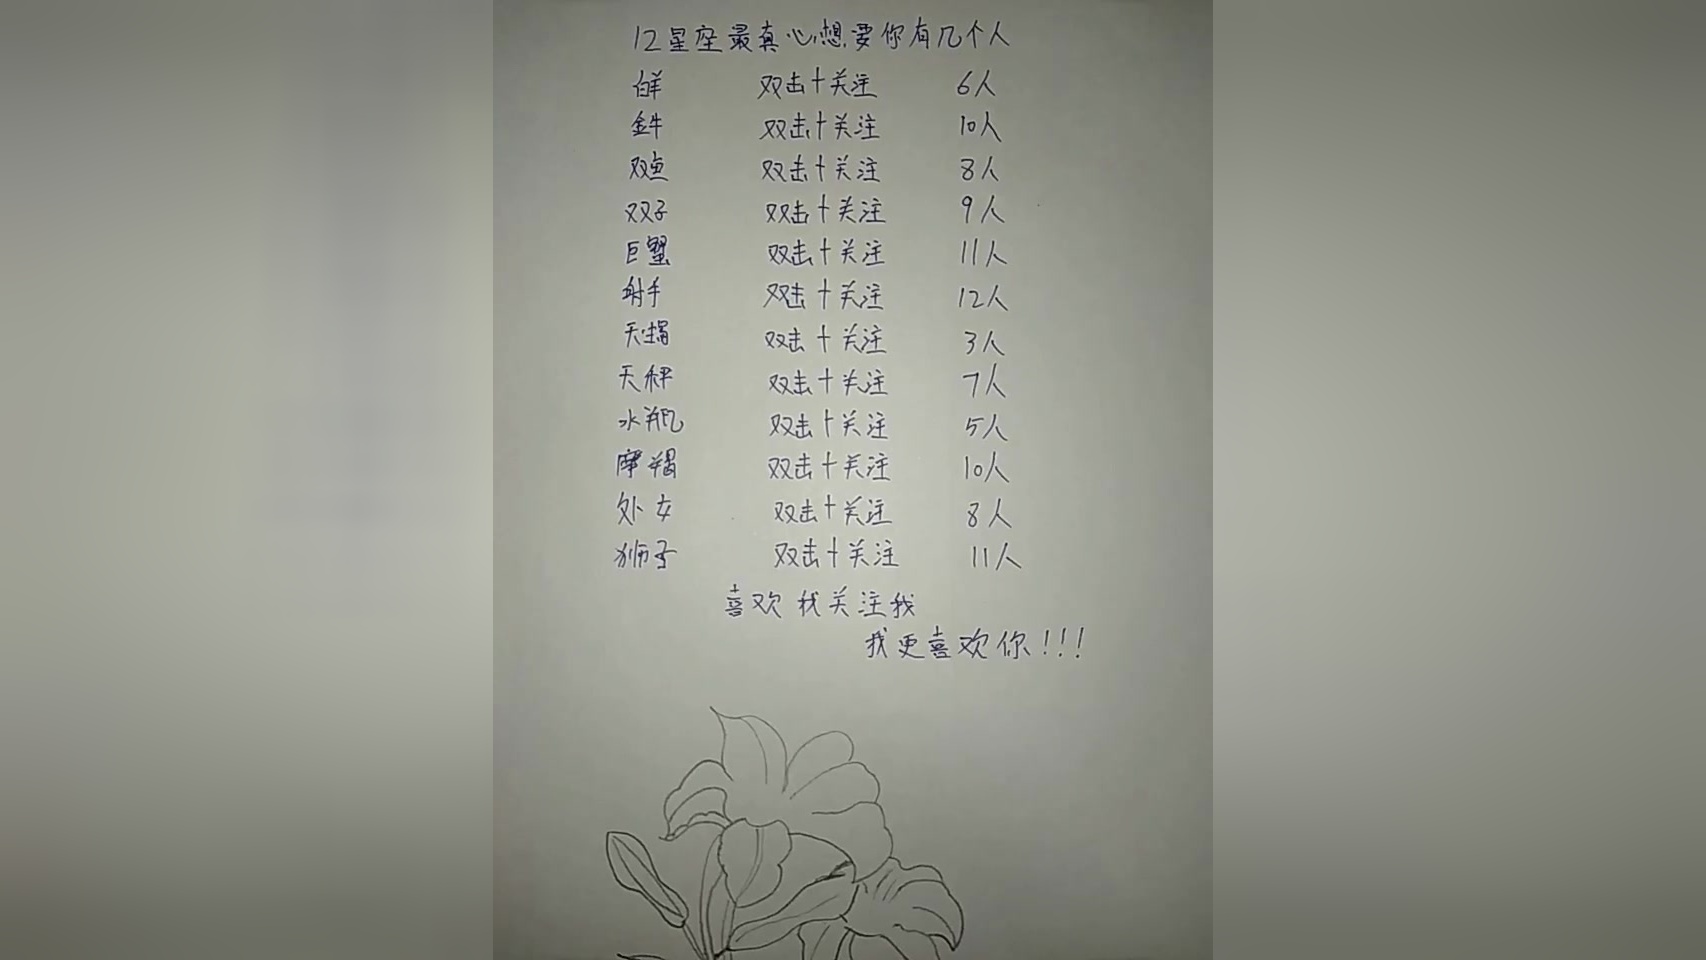 12星座最真心想要你有几个人
白羊 双击+关注 6人
金牛 双击+关注 10人
双鱼 双击+关注 8人
双子 双击+关注 9人
巨蟹 双击+关注 11人
射手 双击+关注 12人
天蝎 双击+关注 3人
天秤 双击+关注 7人
水瓶 双击+关注 5人
摩羯 双击+关注 10人
处女 双击+关注 8人
狮子 双击+关注 11人
喜欢我关注我
我更喜欢你!!!